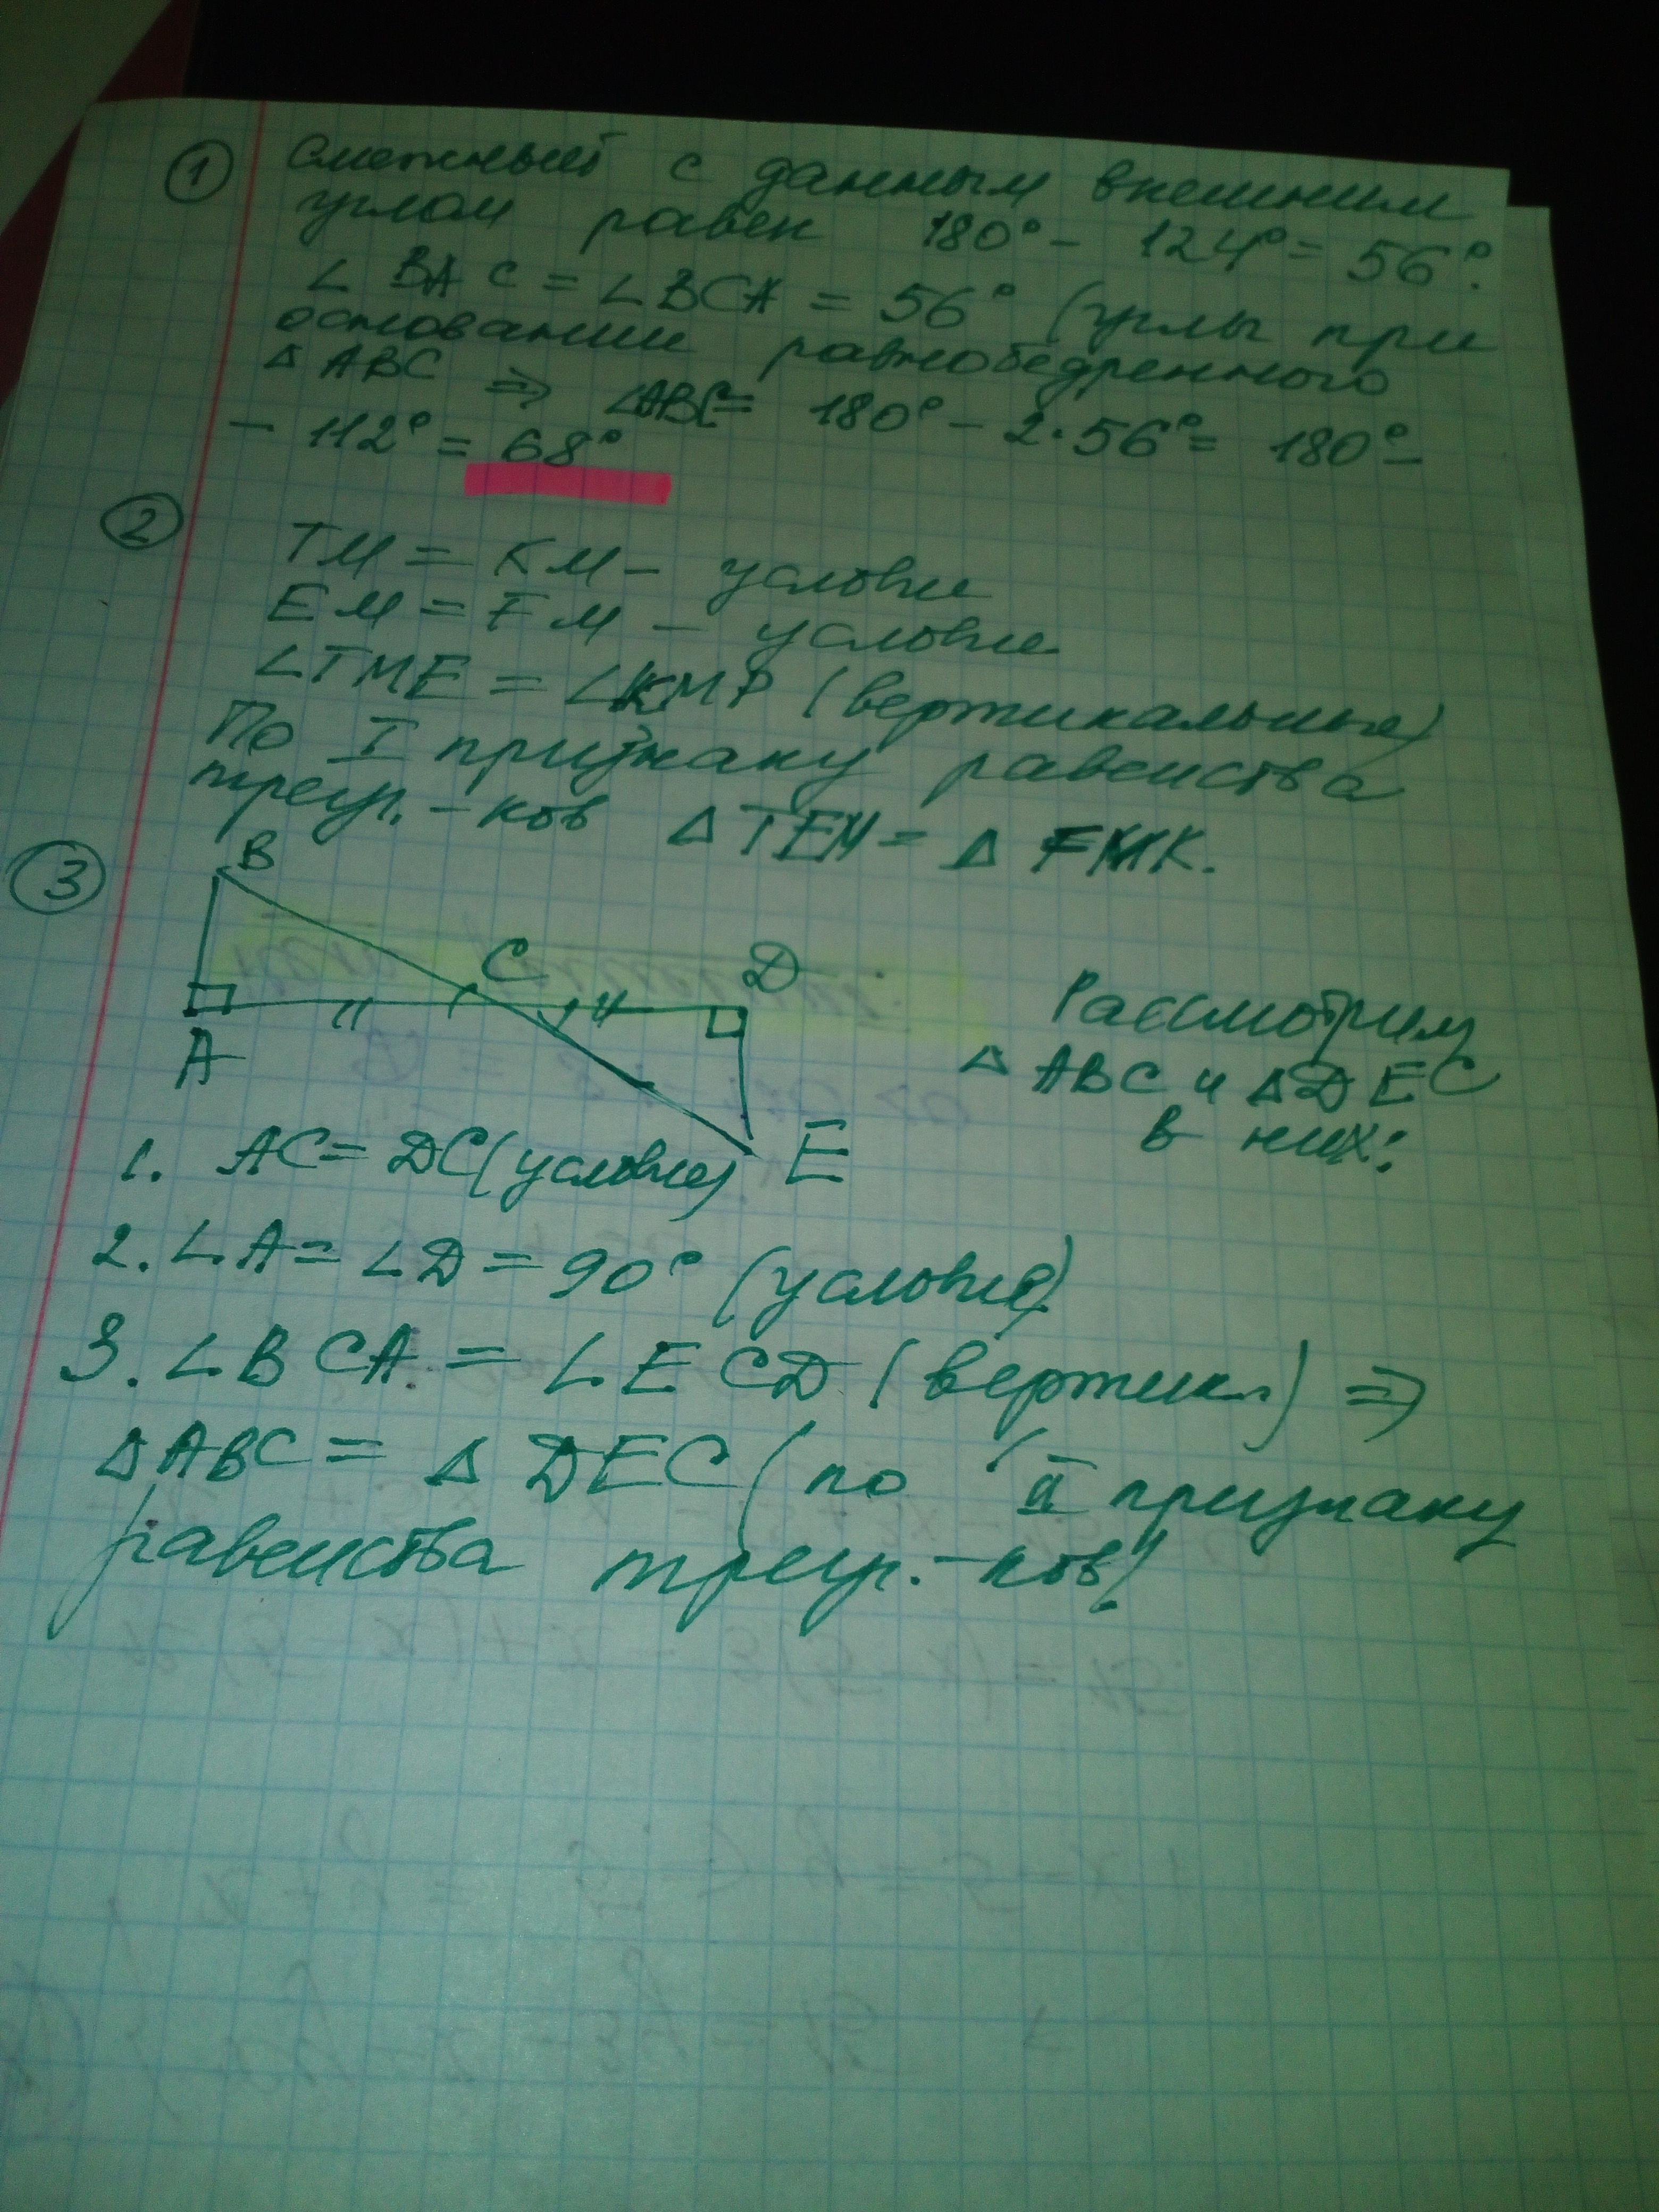 1 Смежный с данным внешним
углом равен 180° - 124° = 56°.
∠ BAC = ∠BCA = 56° (углы при
основании равнобедренного
△ ABC ⇒ ∠ABC = 180° - 2·56° = 180° -
- 112° = 68°
2
TM = KM - условие
EM = FM - условие
∠TME = ∠KMP (вертикальные)
По I признаку равенства
треуг.-ков △ TEM = △ FMK.
3
B
C
D
A
E
Рассмотрим
△ ABC и △DEC
в них:
1. AC = DC (условие)
2. ∠A = ∠D = 90° (условие)
3. ∠BCA = ∠ECD (вертикл) ⇒
△ABC = △ DEC (по II признаку
равенства треуг.-ков)